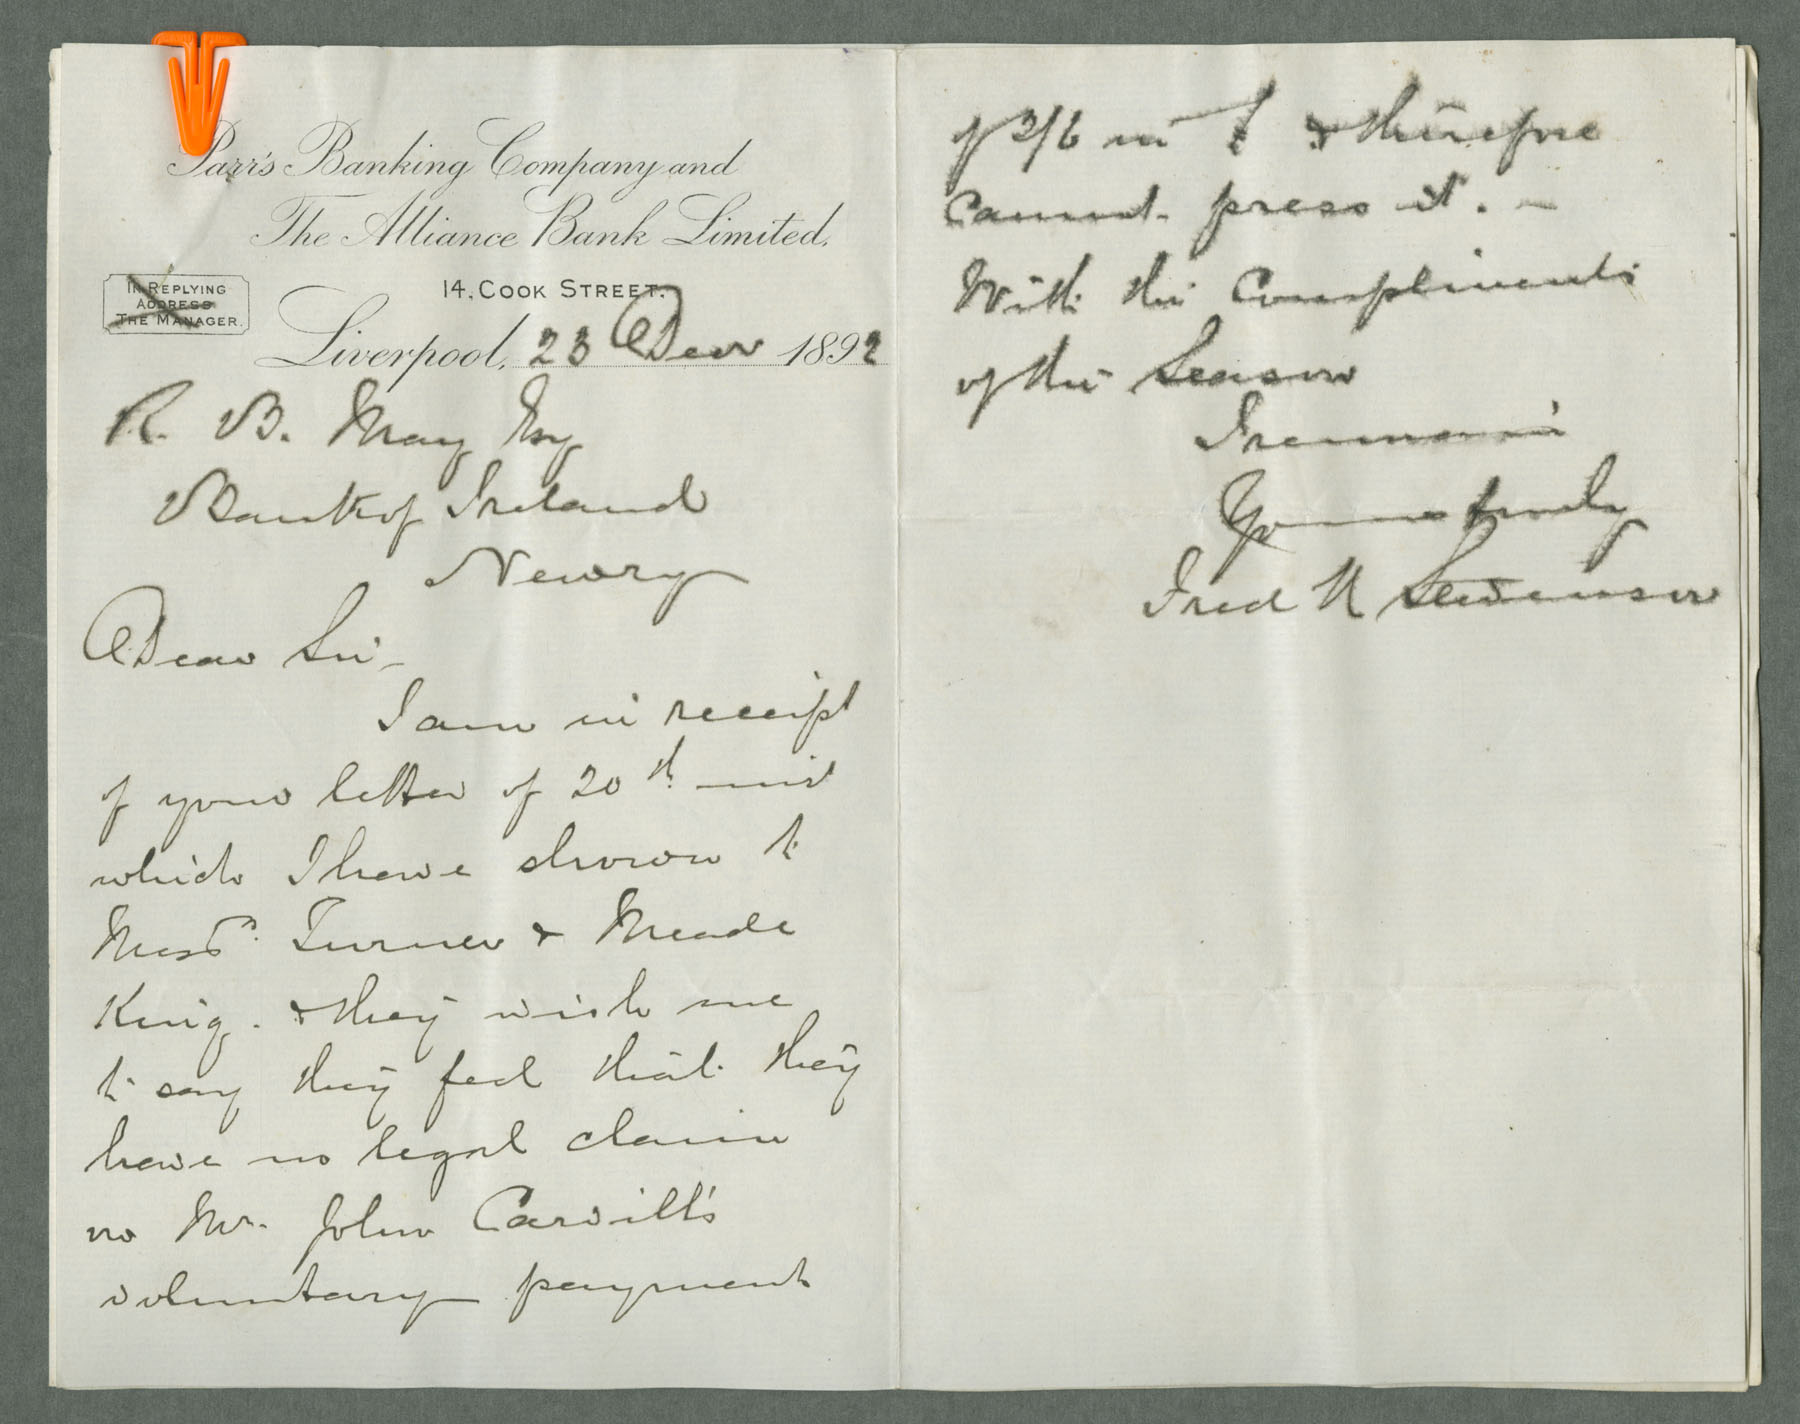 Parr's Banking Company and
The Alliance Bank Limited.
14, COOK STREET.
IN REPLYING
ADDRESS
THE MANAGER.
Liverpool, 23 Decr 1892
R. B. May Esq
Bank of Ireland
Newry
Dear Sir -
I am in receipt
of your letter of 20th inst
which I have shown to
Messrs. Turner & Meade
King. & they wish me
to say they feel that they
have no legal claim
no Mr. John Carvill's
voluntary payment
of 2/6 in £ & therefore
cannot press it. -
With the Compliments
of the Season
I remain
Yours truly
Fred N Stevenson